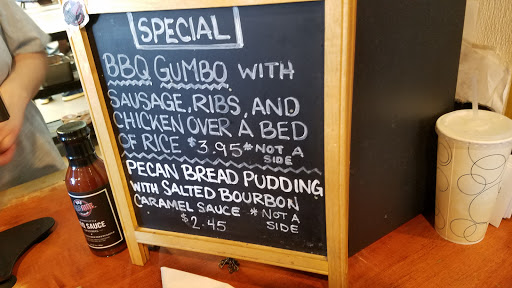 SPECIAL
BBQ GUMBO WITH
SAUSAGE, RIBS, AND
CHICKEN OVER A BED
OF RICE $3.95 *NOT A
SIDE
PECAN BREAD PUDDING
WITH SALTED BOURBON
CARAMEL SAUCE *NOT A
$2.45 SIDE
SAUCE